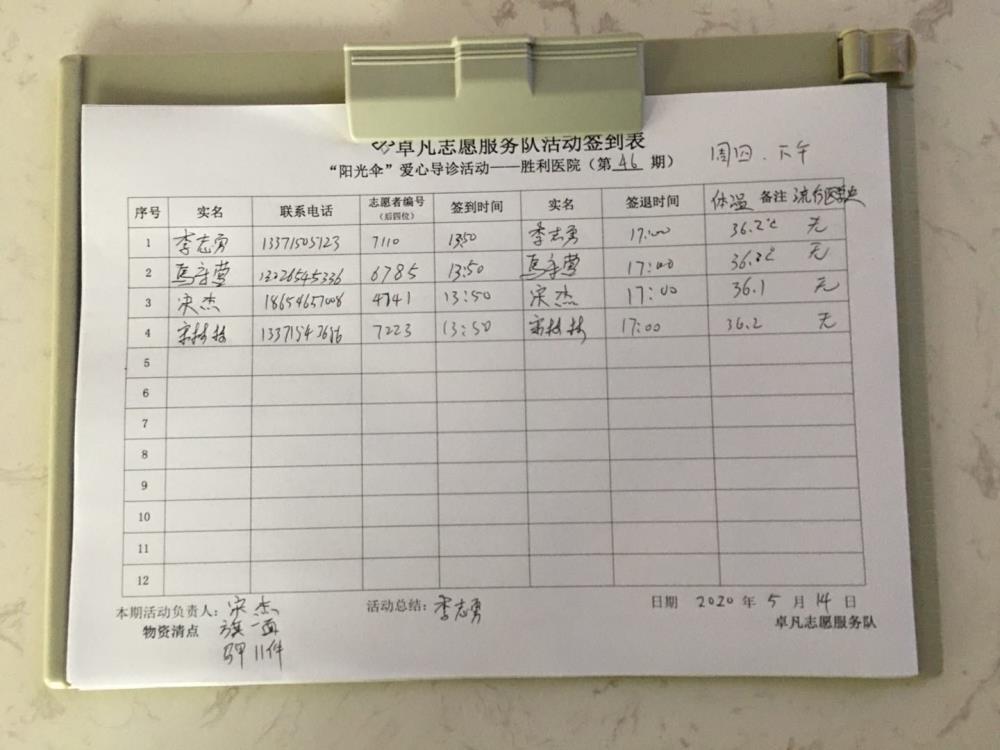 卓凡志愿服务队活动签到表
“阳光伞”爱心导诊活动——胜利医院(第 46 期) 周四.下午
序号 实名 联系电话 志愿者编号(后四位) 签到时间 实名 签退时间 体温 备注
1 李志勇 13371505123 7110 13:50 李志勇 17:00 36.2℃ 无
2 6785 13:50 17:00 36.2℃ 无
3 宋杰 18654657008 4741 13:50 宋杰 17:00 36.1 无
4 7223 13:50 17:00 36.2 无
5
6
7
8
9
10
11
12
本期活动负责人:宋杰 活动总结:李志勇 日期 2020 年 5 月 14 日
物资清点 旗一面 卓凡志愿服务队
马甲 11件